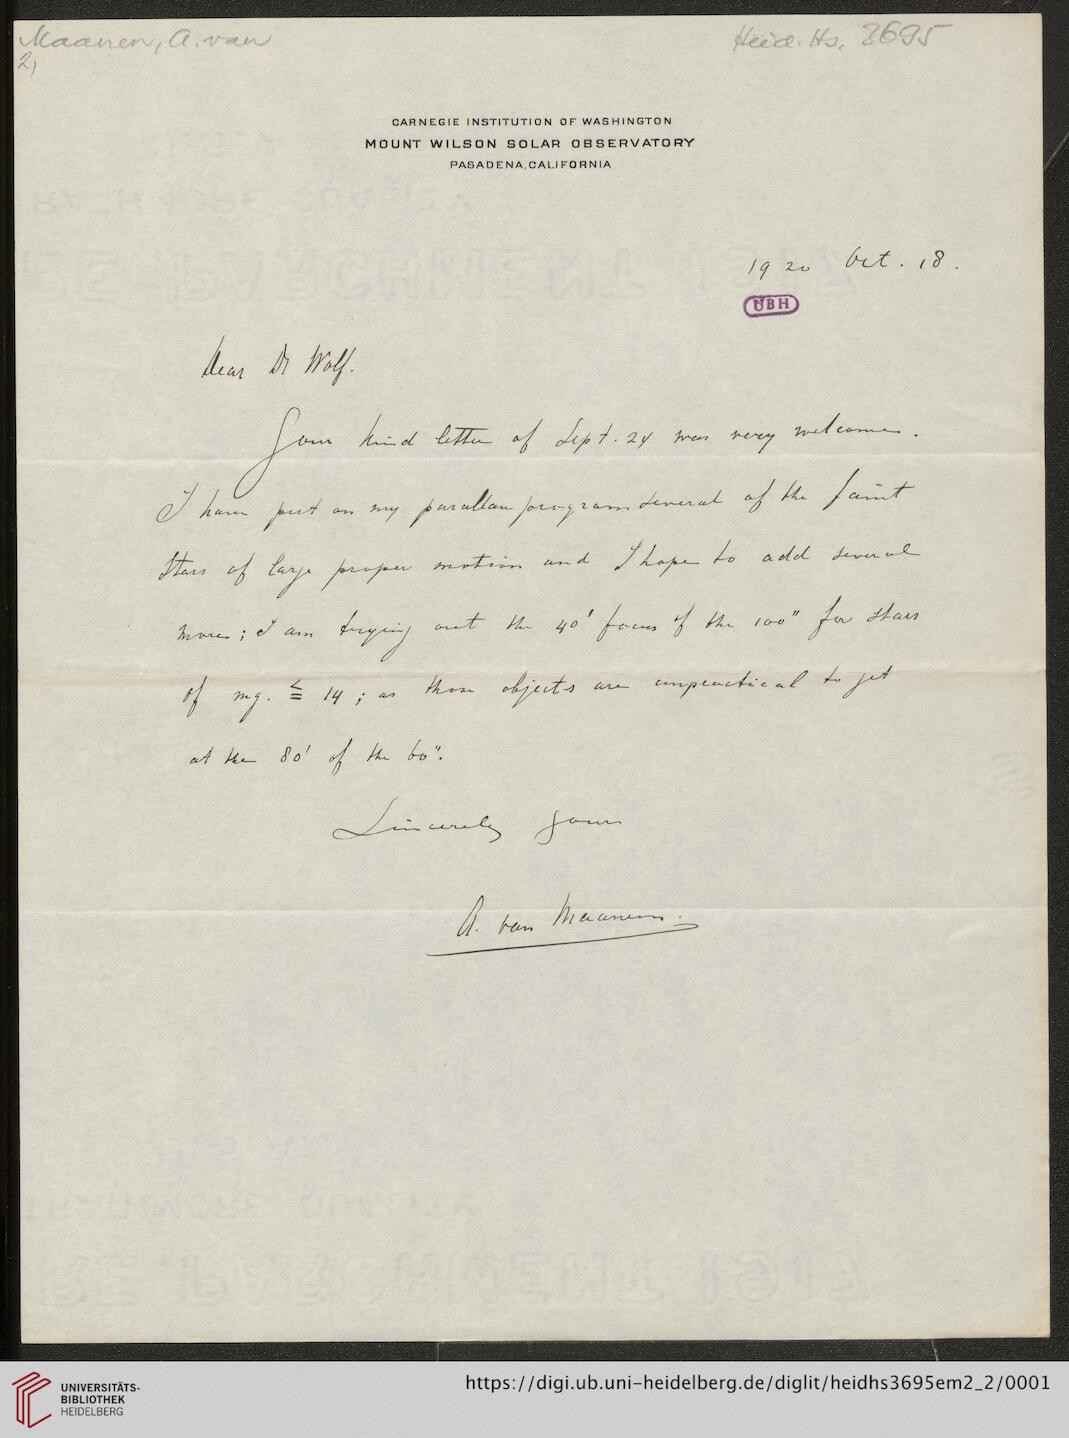 Maanen, A. van
Heid. Hs. 3695
2,
CARNEGIE INSTITUTION OF WASHINGTON
MOUNT WILSON SOLAR OBSERVATORY
PASADENA, CALIFORNIA
1920 Oct. 18.
UBH
Dear Dr Wolf.
Your kind letter of Sept. 24 was very welcome.
I have put on my parallax program several of the faint
stars of large proper motion and I hope to add several
more; I am trying out the 40' focus of the 100" for stars
of mg. ≦ 14; as those objects are unpractical to get
at the 80' of the 60".
Sincerely yours
A. van Maanen.
UNIVERSITÄTS-
BIBLIOTHEK
HEIDELBERG
https://digi.ub.uni-heidelberg.de/diglit/heidhs3695em2_2/0001